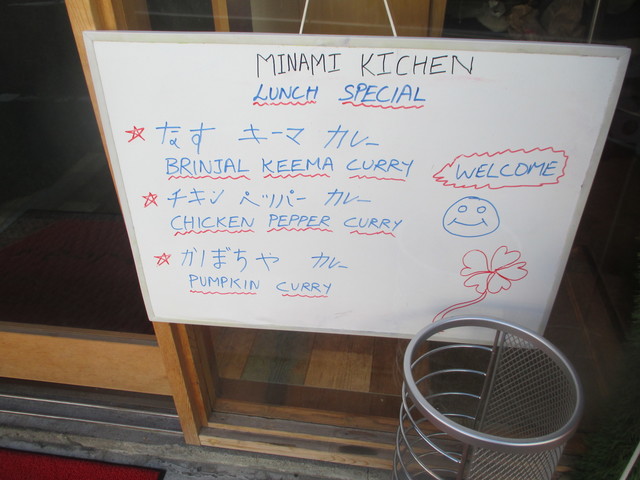 MINAMI KICHEN
LUNCH SPECIAL
なす キーマ カレー
BRINJAL KEEMA CURRY
WELCOME
チキン ペッパー カレー
CHICKEN PEPPER CURRY
かぼちゃ カレー
PUMPKIN CURRY